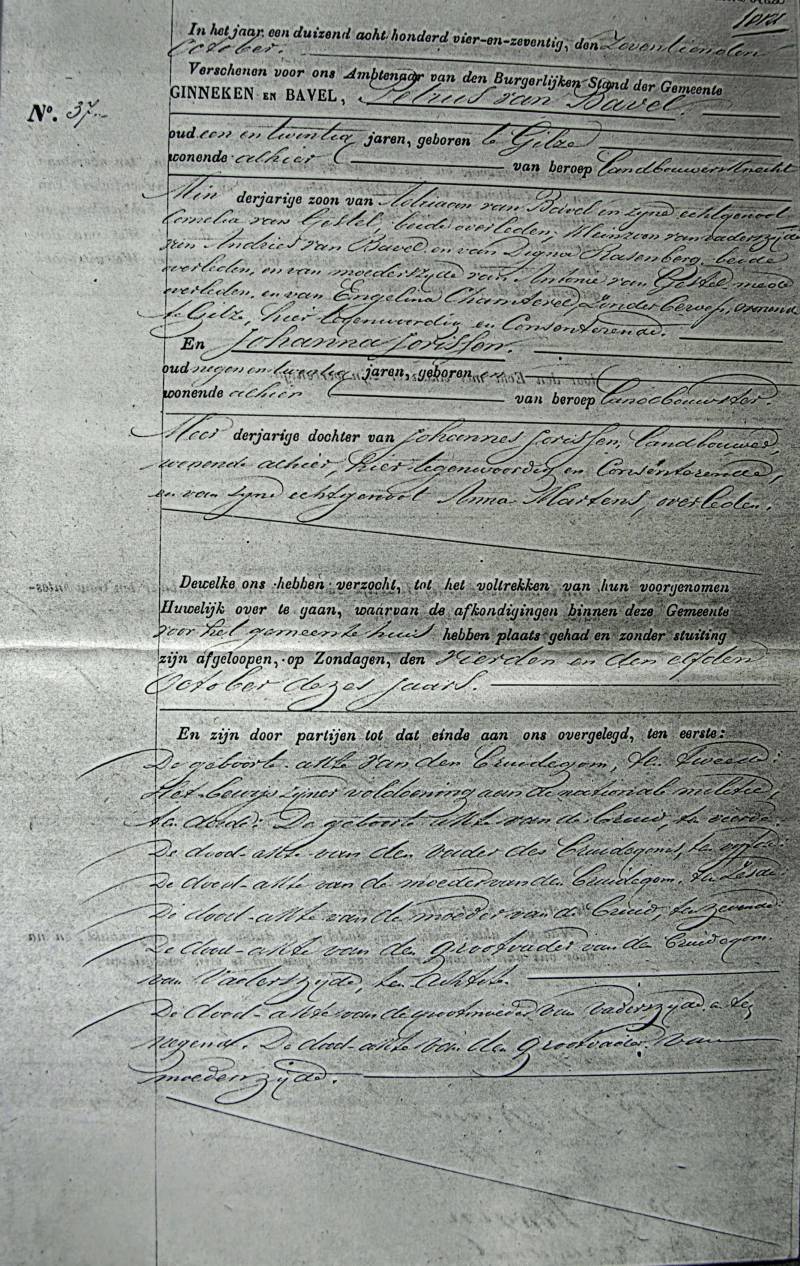 In het jaar een duizend acht honderd vier-en-zeventig, den Zeventienden
October.
Verschenen voor ons Ambtenaar van den Burgerlijken Stand der Gemeente
GINNEKEN EN BAVEL, Petrus van Bavel.
N°. 37
oud een en twintig jaren, geboren te Gilze
wonende alhier van beroep Landbouwersknecht
Min derjarige zoon van Adriaan van Bavel en zijne echtgenoot
Cornelia van Gestel, beide overleden, kleinzoon van vaderszijde
van Andries van Bavel en van Digna Rasenberg, beide
overleden, en van moederszijde van Antonie van Gestel, mede
overleden, en van Engelina Chanterel, Zonder beroep, wonende
te Gilze, hier tegenwoordig en Consenterende.
En Johanna Jorissen.
oud negen en twintig jaren, geboren en
wonende alhier van beroep Landbouwster.
Meer derjarige dochter van Johannes Jorissen, Landbouwer,
wonende alhier, hier tegenwoordig en Consenterende,
en van zijne echtgenoot Anna Martens, overleden.
Dewelke ons hebben verzocht, tot het voltrekken van hun voorgenomen
Huwelijk over te gaan, waarvan de afkondigingen binnen deze Gemeente
voor het gemeente huis hebben plaats gehad en zonder stuiting
zijn afgeloopen, op Zondagen, den Vierden en den elfden
October dezes jaars.
En zijn door partijen tot dat einde aan ons overgelegd, ten eerste:
De geboorte-akte van den Bruidegom, te Tweede:
Het bewijs zijner voldoening aan de nationale militie,
te derde: De geboorte akte van de Bruid, te vierde:
De dood-akte van den vader des Bruidegoms, te vijfde:
De dood-akte van de moeder van den Bruidegom, te Zesde:
De dood-akte van de moeder van de Bruid, te zevende:
De dood-akte van den grootvader van de Bruidegom
van vaderszijde, te Achtste.
De dood-akte van de grootmoeder van vaderszijde, en te
negend. De dood-akte van den grootvader van
moederszijde.